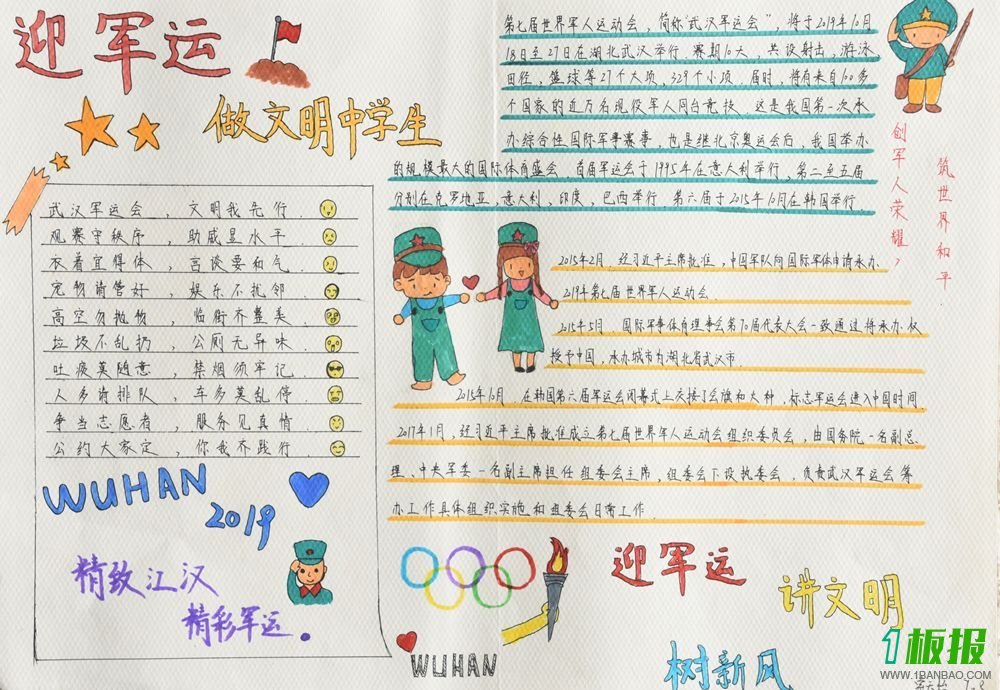 迎军运
做文明中学生
武汉军运会，文明我先行
观赛守秩序，助威显水平
衣着宜得体，言谈要和气
宠物请管好，娱乐不扰邻
高空勿抛物，临街齐整美
垃圾不乱扔，公厕无异味
吐痰莫随意，禁烟须牢记
人多请排队，车多莫乱停
争当志愿者，服务见真情
公约大家定，你我齐践行
WUHAN
2019
精致江汉
精彩军运。
第七届世界军人运动会，简称"武汉军运会"，将于2019年10月
18日至27日在湖北武汉举行.赛期10天，共设射击，游泳
田径，篮球等27个大项，329个小项.届时，将有来自100多
个国家的近万名现役军人同台竞技.这是我国第一次承
办综合性国际军事赛事，也是继北京奥运会后，我国举办
的规模最大的国际体育盛会.首届军运会于1995年在意大利举行，第二至五届
分别在克罗地亚，意大利，印度，巴西举行.第六届于2015年10月在韩国举行.
创军人荣耀，
筑世界和平
2015年2月，经习近平主席批准，中国军队向国际军体申请承办
2019年第七届世界军人运动会.
2015年5月，国际军事体育理事会第70届代表大会一致通过将承办权
授予中国，承办城市为湖北省武汉市.
2015年10月，在韩国第六届军运会闭幕式上交接了会旗和火种，标志军运会进入中国时间.
2017年1月，经习近平主席批准成立第七届世界军人运动会组织委员会，由国务院一名副总
理、中央军委一名副主席担任组委会主席，组委会下设执委会，负责武汉军运会筹
办工作具体组织实施和组委会日常工作.
迎军运
讲文明
树新风
WUHAN
1板报
WWW.1BANBAO.COM